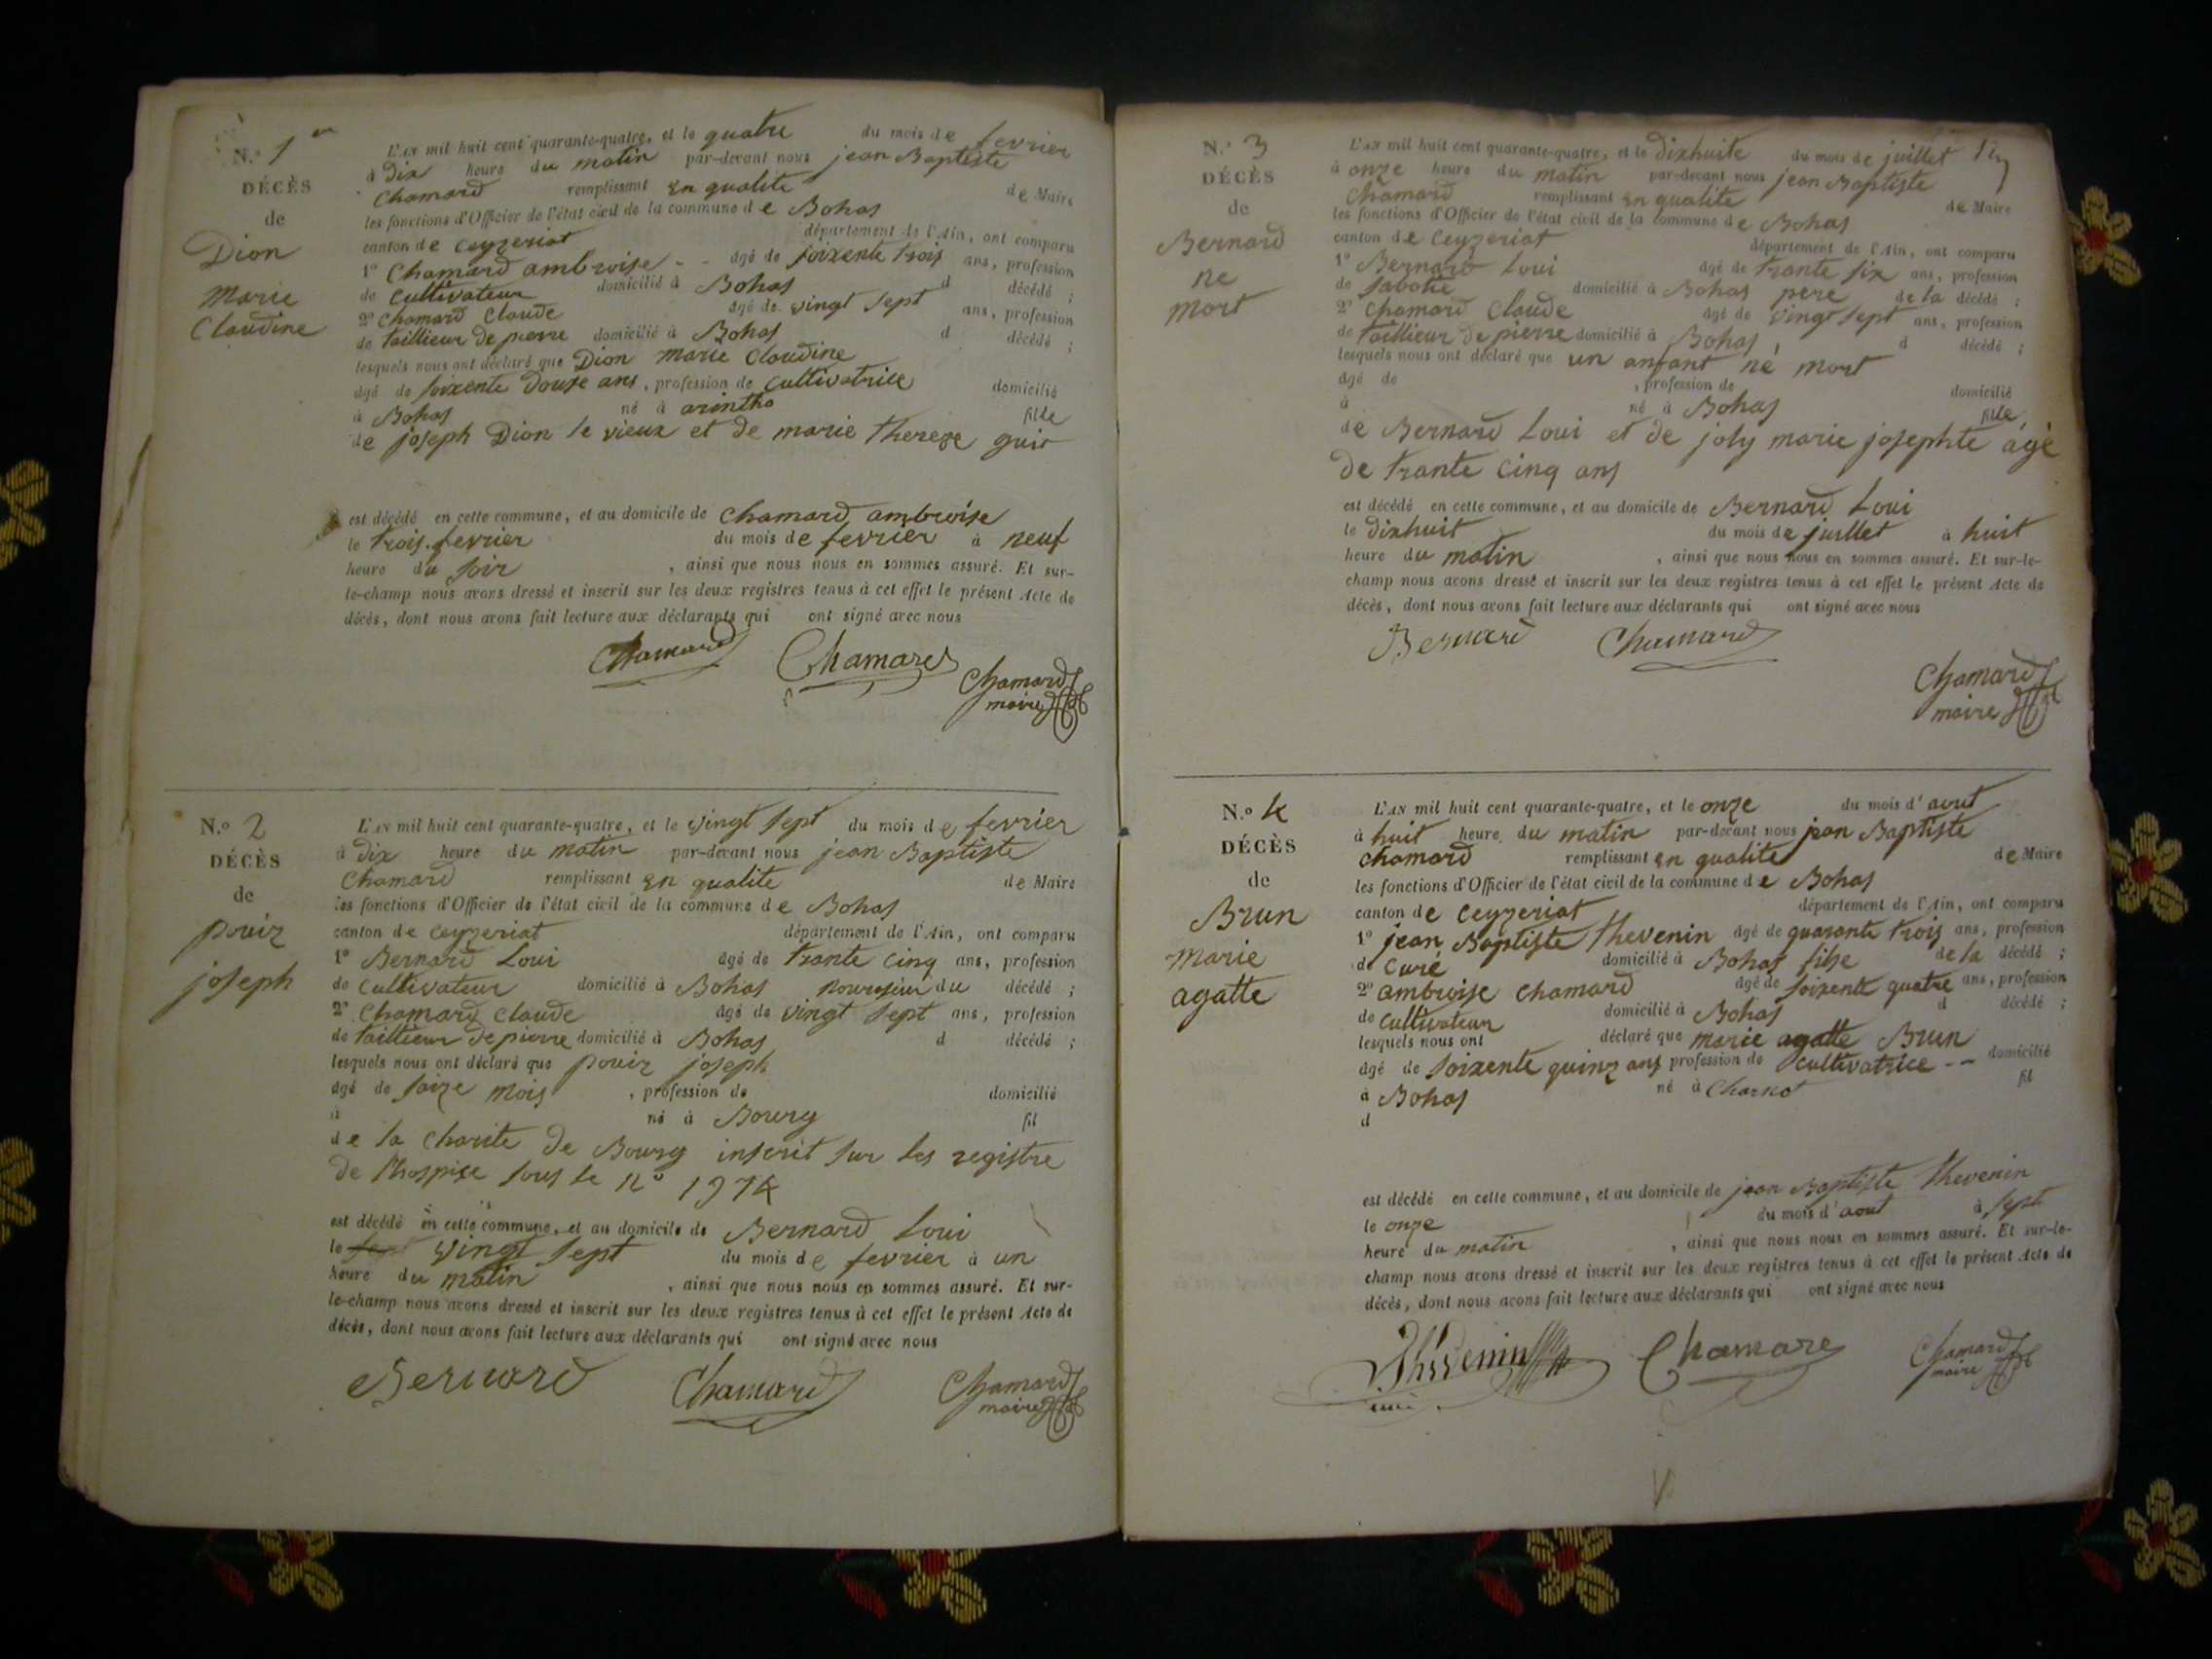 N.º 1er
DÉCÈS
de
Dion
Marie
Claudine
L'AN mil huit cent quarante-quatre, et le quatre du mois de fevrier
à Dix heure du matin par-devant nous jean Baptiste
Chamard remplissant en qualite de Maire
les fonctions d'Officier de l'état civil de la commune de Bohas
canton de Ceyzeriat département de l'Ain, ont comparu
1º Chamard ambroise - - âgé de soixente trois ans, profession
de cultivateur domicilié à Bohas d décédé ;
2º Chamard Claude âgé de vingt sept ans, profession
de taillieur de pierre domicilié à Bohas d décédé ;
lesquels nous ont déclaré que Dion marie Claudine
âgé de soixente douze ans, profession de cultivatrice domicilié
à Bohas né à arintho fille
de joseph Dion le vieux et de marie thereze
est décédé en cette commune, et au domicile de Chamard ambroise
le trois fevrier du mois de fevrier à neuf
heure du soir , ainsi que nous nous en sommes assuré. Et sur-
le-champ nous avons dressé et inscrit sur les deux registres tenus à cet effet le présent Acte de
décès, dont nous avons fait lecture aux déclarants qui ont signé avec nous
Chamard Chamard Chamard
maire
N.º 2
DÉCÈS
de
pouiz
joseph
L'AN mil huit cent quarante-quatre, et le vingt sept du mois de fevrier
à dix heure du matin par-devant nous jean Baptiste
Chamard remplissant en qualite de Maire
les fonctions d'Officier de l'état civil de la commune de Bohas
canton de Ceyzeriat département de l'Ain, ont comparu
1º Bernard Loui âgé de trante cinq ans, profession
de cultivateur domicilié à Bohas du décédé ;
2º Chamard Claude âgé de vingt sept ans, profession
de taillieur de pierre domicilié à Bohas d décédé ;
lesquels nous ont déclaré que pouiz joseph
âgé de saize mois , profession de domicilié
à né à Bourg fil
de la charite de Bourg inscrit sur les registre
de l'hospise sous le nº 1974
est décédé en cette commune, et au domicile de Bernard Loui
le vingt sept du mois de fevrier à un
heure du matin , ainsi que nous nous en sommes assuré. Et sur-
le-champ nous avons dressé et inscrit sur les deux registres tenus à cet effet le présent Acte de
décès, dont nous avons fait lecture aux déclarants qui ont signé avec nous
Bernard Chamard Chamard
maire
N.º 3
DÉCÈS
de
Bernard
ne
mort
L'AN mil huit cent quarante-quatre, et le dixhuite du mois de juillet
à onze heure du matin par-devant nous jean Baptiste
Chamard remplissant en qualite de Maire
les fonctions d'Officier de l'état civil de la commune de Bohas
canton de Ceyzeriat département de l'Ain, ont comparu
1º Bernard Loui âgé de trante six ans, profession
de sabotie domicilié à Bohas pere de la décédé ;
2º Chamard Claude âgé de vingt sept ans, profession
de taillieur de pierre domicilié à Bohas , d décédé ;
lesquels nous ont déclaré que un anfant né mort
âgé de , profession de domicilié
à né à Bohas fille
de Bernard Loui et de joly marie josephte agé
de trante cinq ans
est décédé en cette commune, et au domicile de Bernard Loui
le dixhuit du mois de juillet à huit
heure du matin , ainsi que nous nous en sommes assuré. Et sur-le-
champ nous avons dressé et inscrit sur les deux registres tenus à cet effet le présent Acte de
décès, dont nous avons fait lecture aux déclarants qui ont signé avec nous
Bernard Chamard Chamard
maire
N.º 4
DÉCÈS
de
Brun
marie
agatte
L'AN mil huit cent quarante-quatre, et le onze du mois d'aout
à huit heure du matin par-devant nous jean Baptiste
chamard remplissant en qualite de Maire
les fonctions d'Officier de l'état civil de la commune de Bohas
canton de Ceyzeriat département de l'Ain, ont comparu
1º jean Baptiste thevenin âgé de quarante trois ans, profession
de curé domicilié à Bohas de la décédé ;
2º ambroise chamard âgé de soixente quatre ans, profession
de cultivateur domicilié à Bohas d décédé ;
lesquels nous ont déclaré que marie agatte Brun
âgé de soixente quinz ans profession de cultivatrice - - domicilié
à Bohas né à Charnot fil
d
est décédé en cette commune, et au domicile de jean Baptiste thevenin
le onze du mois d'aout à sept
heure du matin , ainsi que nous nous en sommes assuré. Et sur-le-
champ nous avons dressé et inscrit sur les deux registres tenus à cet effet le présent Acte de
décès, dont nous avons fait lecture aux déclarants qui ont signé avec nous
Thevenin Chamard Chamard
curé maire